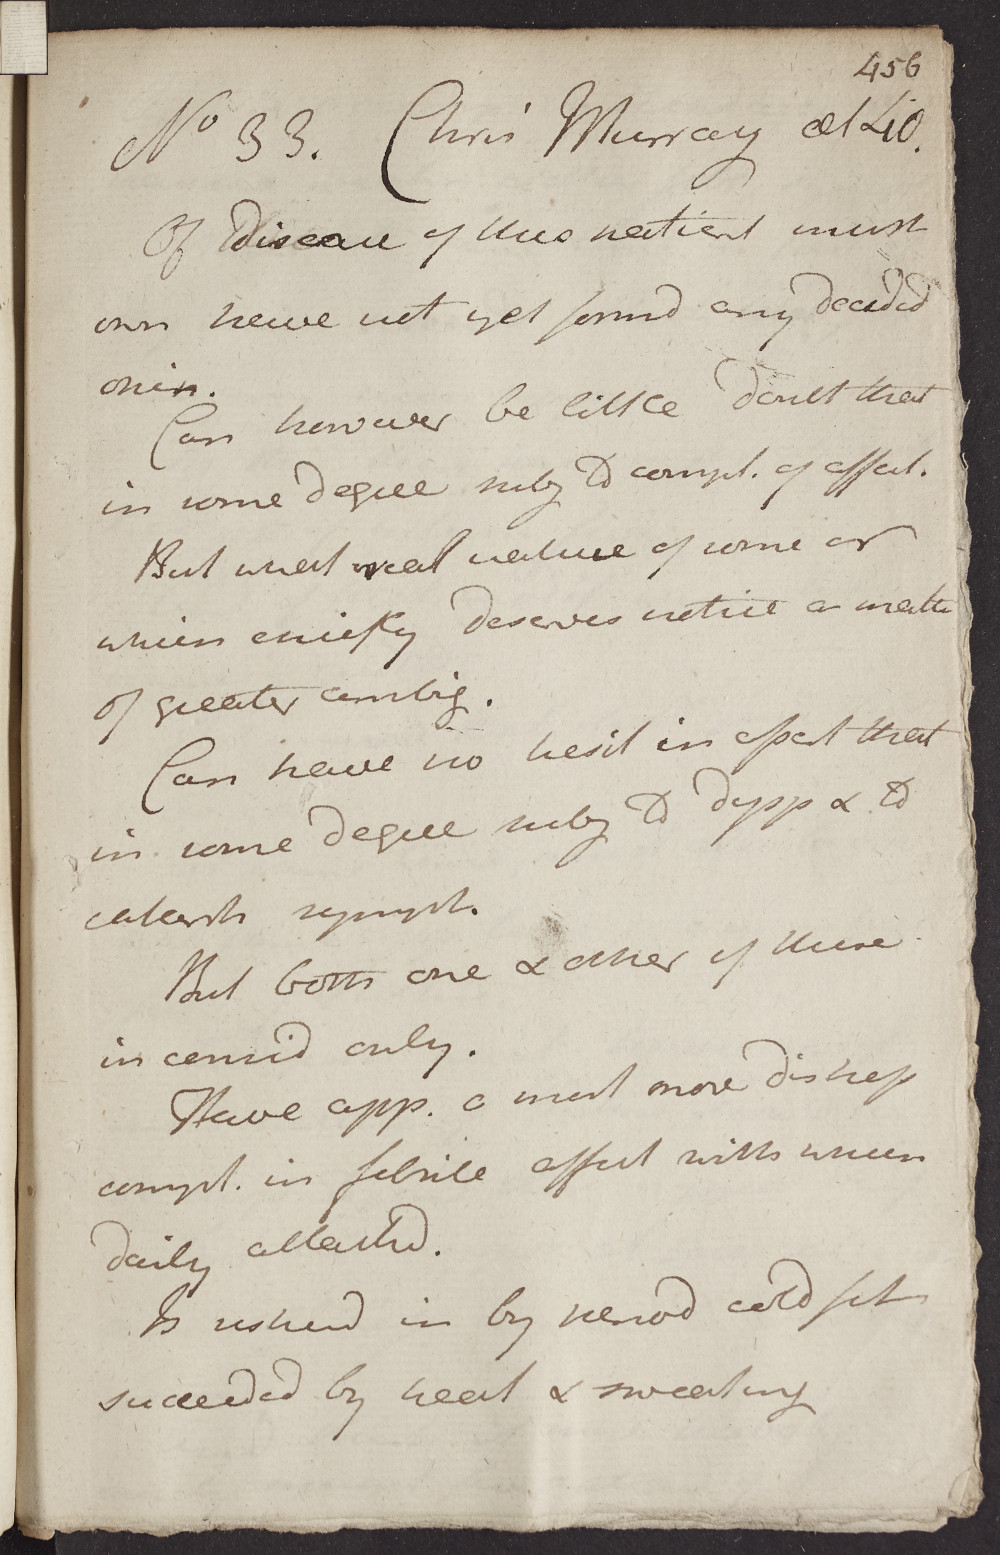 456
No 33. Chris Murray æt 40.
Of Disease of this patient must
own have not yet formd any decided
opin.
Can however be little doubt that
in some degree subj to compl. of affect.
But what real nature of some or
which chiefly deserves notice a matter
of greater ambig.
Can have no hesit in assert that
in some degree subj to dysp & to
catarrh sympt.
But both one & other of these
in consid only.
Have app. a much more distress
compl. in febrile affect with which
daily attackd.
Is usherd in by period cold fit
succeeded by heat & sweating